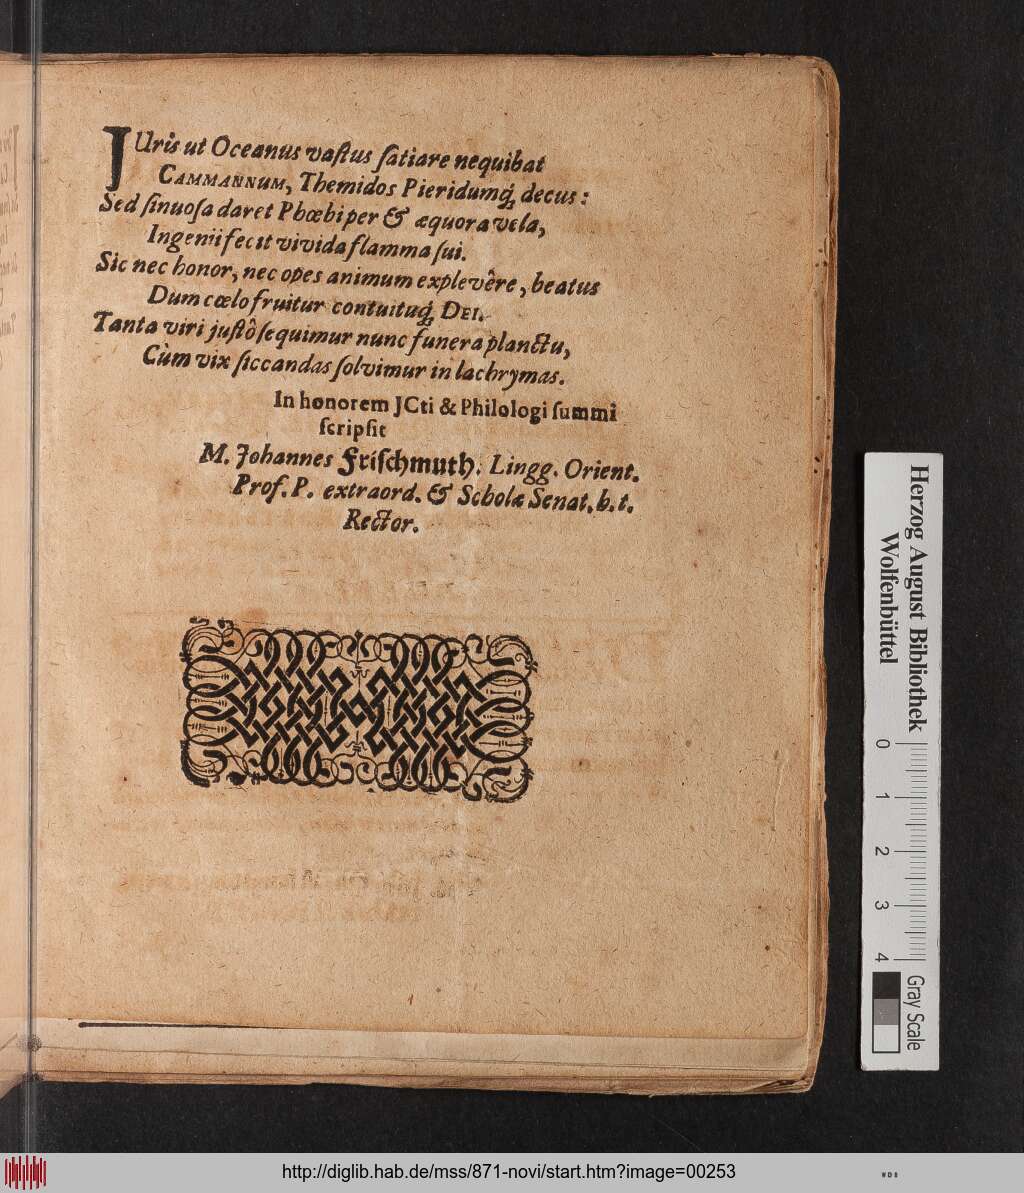 JUris ut Oceanus vastus satiare nequibat
CAMMANNUM, Themidos Pieridumq́; decus:
Sed sinuosa daret Phœbi per & æquora vela,
Ingenii fecit vivida flamma sui.
Sic nec honor, nec opes animum explevêre, beatus
Dum cœlo fruitur contuituq́; DEI.
Tanta viri justô sequimur nunc funera planctu,
Cùm vix siccandas solvimur in lachrymas.
In honorem JCti & Philologi summi
scripsit
M. Johannes Frischmuth. Lingg. Orient.
Prof. P. extraord. & Scholæ Senat. h. t.
Rector.
Herzog August Bibliothek
Wolfenbüttel
0 1 2 3 4
Gray Scale
http://diglib.hab.de/mss/871-novi/start.htm?image=00253